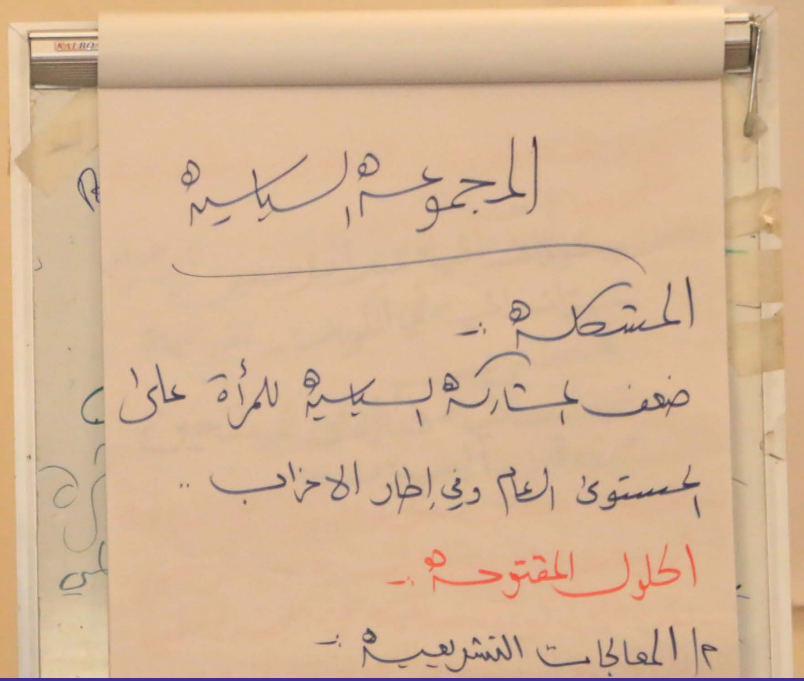 المجموعة السياسية
المشكلة :-
ضعف المشاركة السياسية للمرأة على
المستوى العام وفي إطار الاحزاب ..
الحلول المقتوحة :-
م/ المعالجات التشريعية :-